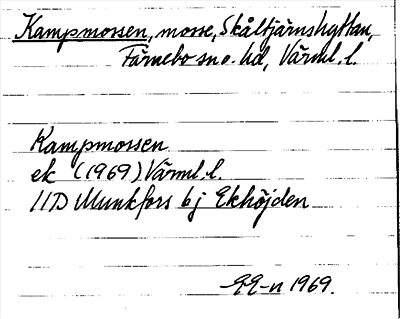 Kampmossen, mosse, Skåltjärnshyttan,
Färnebo sn o. hd, Värml. l.
Kampmossen
ek (1969) Värml. l.
11D Munkfors 6j Ekhöjden
1969.